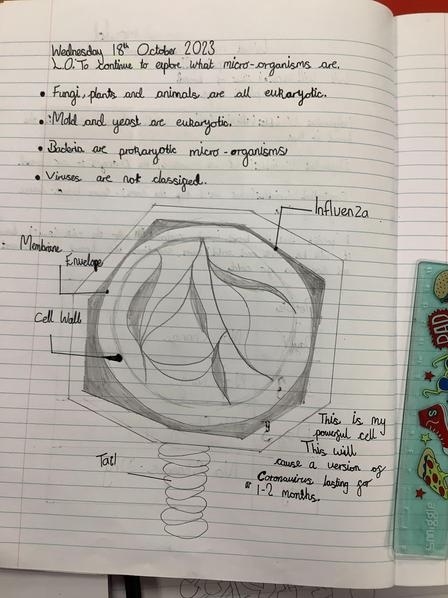 Wednesday 18th October 2023
L.O. To continue to explore what micro-organisms are.
• Fungi, plants and animals are all eukaryotic.
• Mold and yeast are eukaryotic.
• Bacteria are prokaryotic micro-organisms
• Viruses are not classified.
Influenza
Membrane
Envelope
Cell Wall
This is my
powerful cell
This will
cause a version of
Coronavirus lasting for
1-2 months.
Tail
smiggle